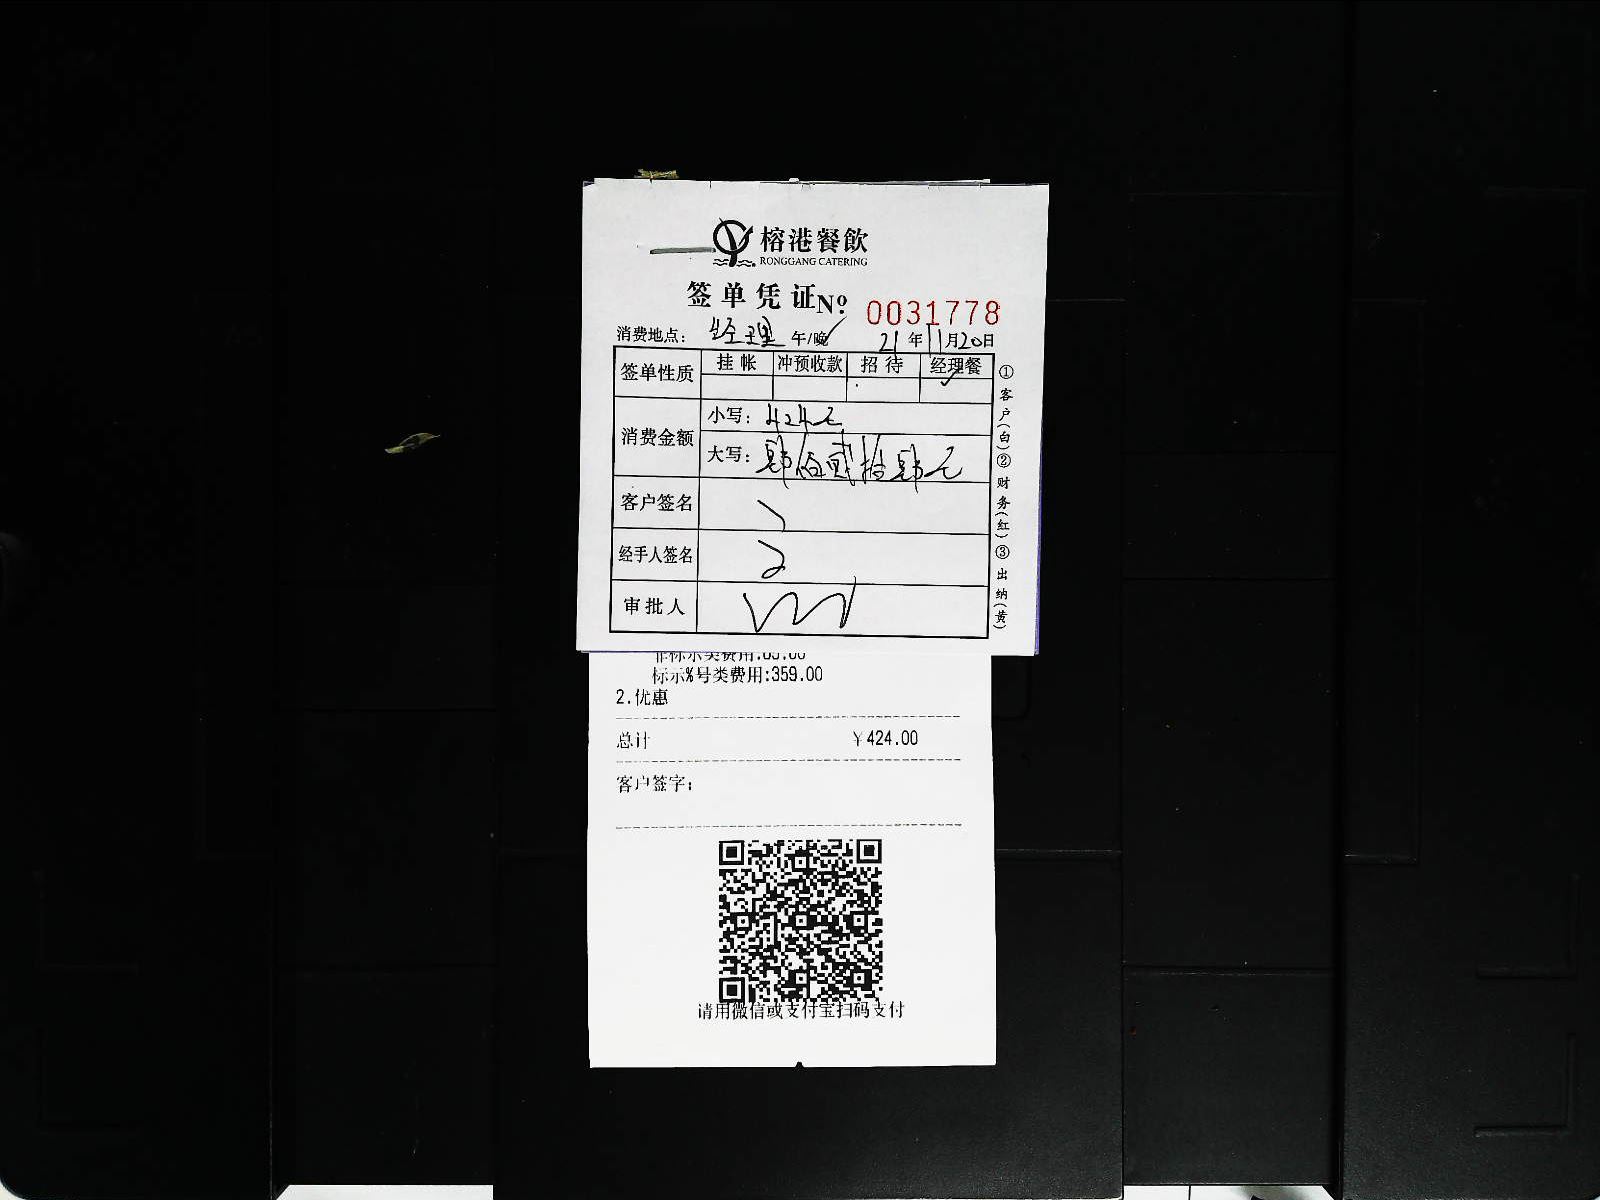 榕港餐飲
RONGGANG CATERING
签单凭证 Nº 0031778
消费地点: 经理 午/晚✓ 21年11月20日
签单性质 挂帐 冲预收款 招待 经理餐
✓
消费金额 小写: 424元
大写: 肆佰贰拾肆元
客户签名
经手人签名
审批人
①客户(白)②财务(红)③出纳(黄)
非标示类费用:65.00
标示%号类费用:359.00
2.优惠
总计 ¥424.00
客户签字:
请用微信或支付宝扫码支付